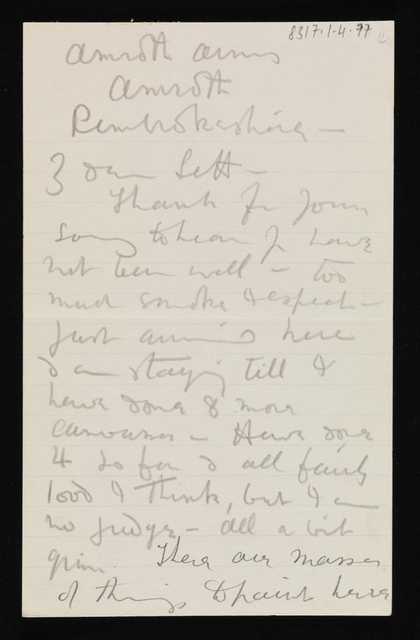 8317.1.4.77
Amroth Arms
Amroth
Pembrokeshire —
Dear Sett —
Thanks for yours
Sorry to hear you have
not been well — too
much smoke I expect —
Just arrived here
& am staying till I
have done 8 more
canvases — Have done
4 so far & all fairly
good I think, but I am
no judge — all a bit
grim. There are masses
of things to paint here